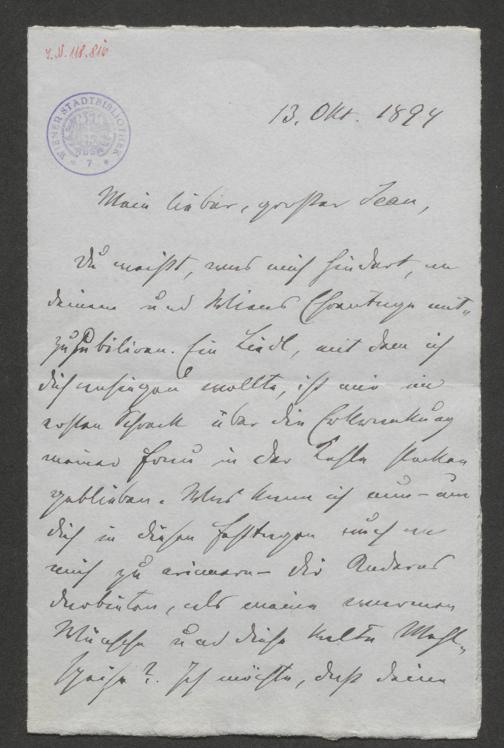 I. N. 118.816
WIENER STADTBIBLIOTHEK
* 7 *
13. Okt. 1894
Mein lieber, großer Jean,
Du weißt, was mich hindert, an
deinem und Wiens Ehrentage mit-
zujubiliren. Ein Liedl, mit dem ich
dich ansingen wollte, ist mir im
ersten Schreck über die Erkrankung
meiner Frau in der Kehle stecken
geblieben. Was kann ich nun – um
dich in diesen Festtagen auch an
mich zu erinnern – dir Anderes
darbieten, als meine warmen
Wünsche und diese kalte Mehl-
speise? Ich möchte, daß deine